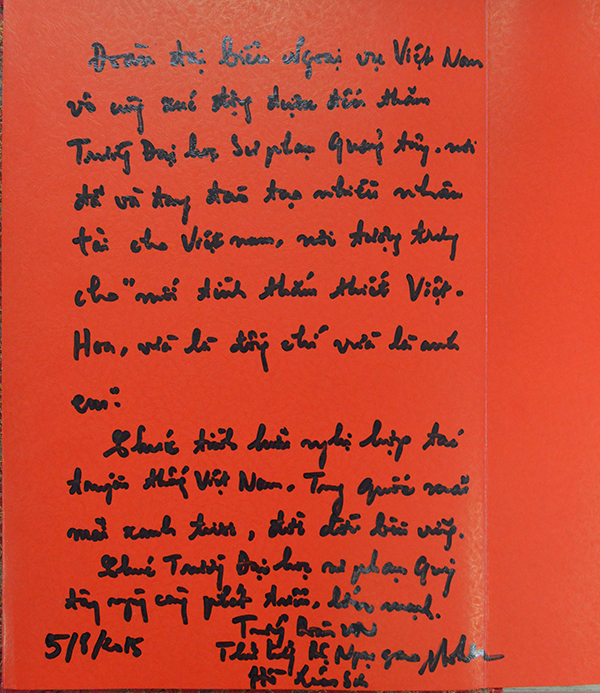 Đoàn đại biểu Ngoại vụ Việt Nam
vô cùng xúc động được đến thăm
Trường Đại học Sư phạm Quảng tây. nơi
đã và đang đào tạo nhiều nhân
tài cho Việt nam, nơi tượng trưng
cho "mối tình thắm thiết Việt-
Hoa, vừa là đồng chí vừa là anh
em".
Chúc tình hữu nghị hợp tác
truyền thống Việt Nam, Trung Quốc mãi
mãi xanh tươi, đời đời bền vững.
Chúc Trường Đại học sư phạm Quảng
tây ngày càng phát triển, lớn mạnh.
Trưởng Đoàn VN
5/8/2015 Thứ trưởng Bộ Ngoại giao
Hồ Xuân Sơn